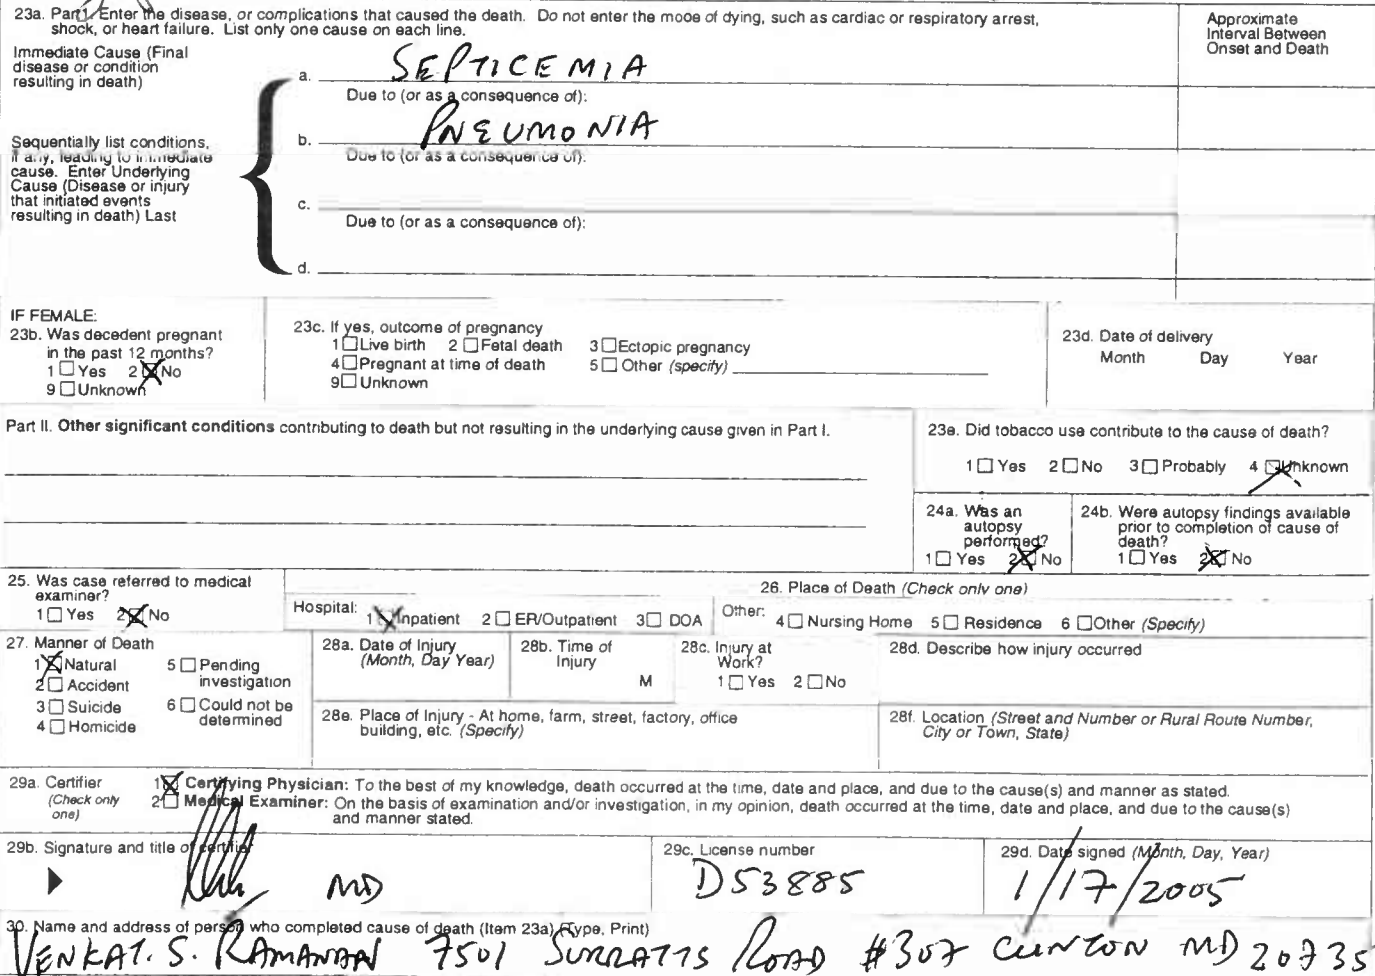 23a. Part I. Enter the disease, or complications that caused the death. Do not enter the mode of dying, such as cardiac or respiratory arrest,
shock, or heart failure. List only one cause on each line.
Approximate
Interval Between
Onset and Death
Immediate Cause (Final
disease or condition
resulting in death)
a. SEPTICEMIA
Due to (or as a consequence of):
Sequentially list conditions,
if any, leading to immediate
cause. Enter Underlying
Cause (Disease or injury
that initiated events
resulting in death) Last
b. PNEUMONIA
Due to (or as a consequence of):
c.
Due to (or as a consequence of):
d.
IF FEMALE:
23b. Was decedent pregnant
in the past 12 months?
1 ☐ Yes 2 ☒ No
9 ☐ Unknown
23c. If yes, outcome of pregnancy
1 ☐ Live birth 2 ☐ Fetal death 3 ☐ Ectopic pregnancy
4 ☐ Pregnant at time of death 5 ☐ Other (specify)
9 ☐ Unknown
23d. Date of delivery
Month Day Year
Part II. Other significant conditions contributing to death but not resulting in the underlying cause given in Part I.
23e. Did tobacco use contribute to the cause of death?
1 ☐ Yes 2 ☐ No 3 ☐ Probably 4 ☒ Unknown
24a. Was an
autopsy
performed?
1 ☐ Yes 2 ☒ No
24b. Were autopsy findings available
prior to completion of cause of
death?
1 ☐ Yes 2 ☒ No
25. Was case referred to medical
examiner?
1 ☐ Yes 2 ☒ No
26. Place of Death (Check only one)
Hospital: 1 ☒ Inpatient 2 ☐ ER/Outpatient 3 ☐ DOA
Other: 4 ☐ Nursing Home 5 ☐ Residence 6 ☐ Other (Specify)
27. Manner of Death
1 ☒ Natural 5 ☐ Pending
investigation
2 ☐ Accident
3 ☐ Suicide 6 ☐ Could not be
determined
4 ☐ Homicide
28a. Date of Injury
(Month, Day Year)
28b. Time of
Injury
M
28c. Injury at
Work?
1 ☐ Yes 2 ☐ No
28d. Describe how injury occurred
28e. Place of Injury - At home, farm, street, factory, office
building, etc. (Specify)
28f. Location (Street and Number or Rural Route Number,
City or Town, State)
29a. Certifier
(Check only
one)
1 ☒ Certifying Physician: To the best of my knowledge, death occurred at the time, date and place, and due to the cause(s) and manner as stated.
2 ☐ Medical Examiner: On the basis of examination and/or investigation, in my opinion, death occurred at the time, date and place, and due to the cause(s)
and manner stated.
29b. Signature and title of certifier
MD
29c. License number
D53885
29d. Date signed (Month, Day, Year)
1/17/2005
30. Name and address of person who completed cause of death (Item 23a) (Type, Print)
VENKAT. S. RAMANAN 7501 SURRATTS ROAD #307 CLINTON MD 20735